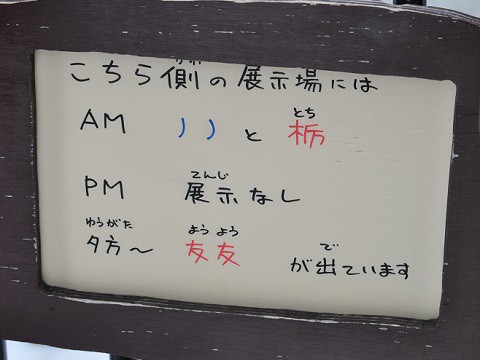 がわ
こちら側の展示場には
とち
AM ハハと栃
てんじ
PM 展示なし
ゆうがた ようよう で
夕方～ 友友 が出ています